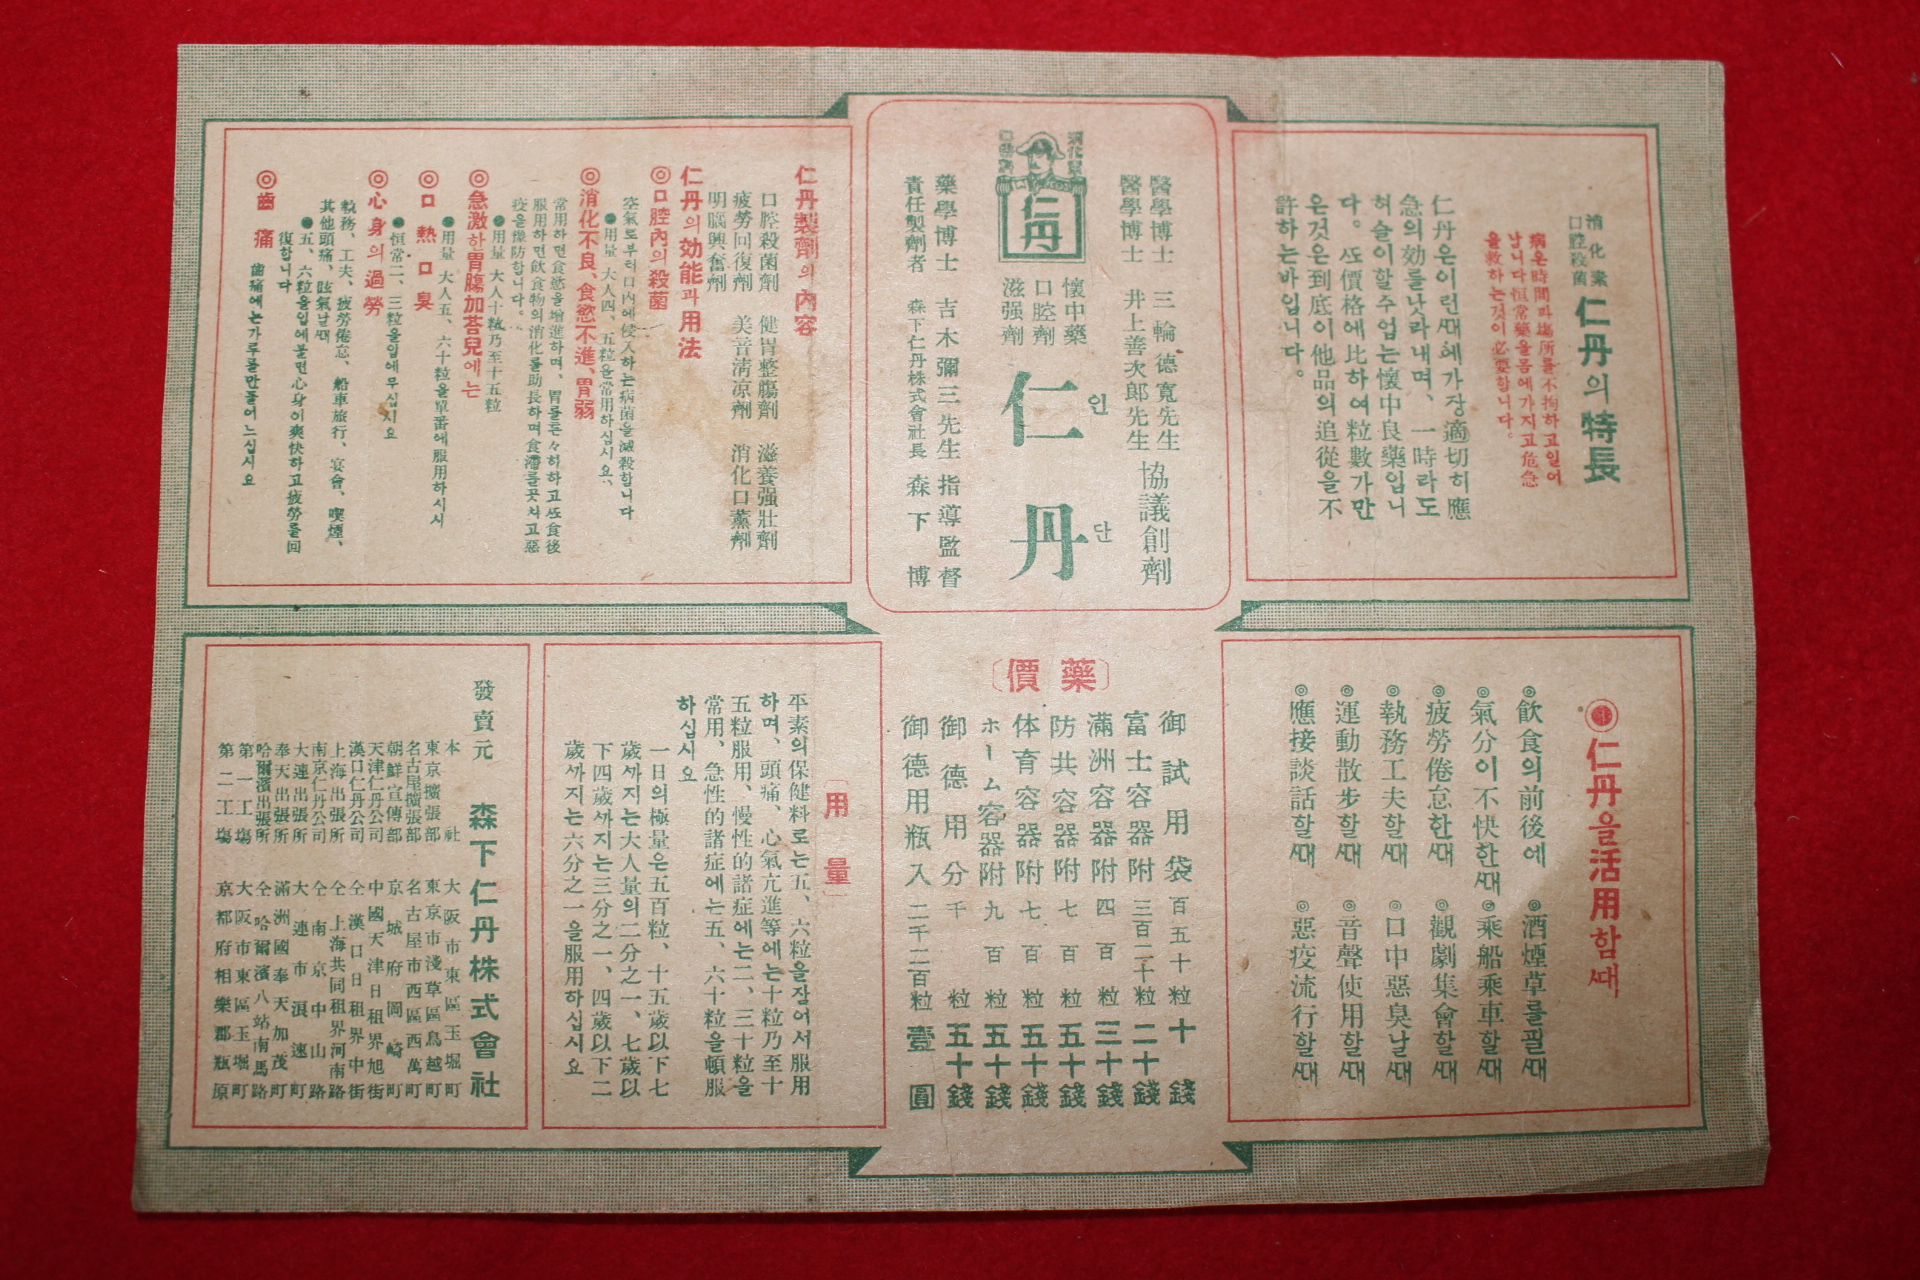 消化素
口腔殺菌
仁丹의特長
病은時間과場所를不拘하고일어
납니다恒常藥을몸에가지고危急
을救하는것이必要합니다。
仁丹은이런ᄯᅢ에가장適切히應
急의効를낫라내며、一時라도
허술이할주업는懷中良藥입니
다。ᄯᅩ價格에比하여粒數가만
은것은到底이他品의追從을不
許하는바입니다。
消化
口
仁丹
醫學博士 三輪德寬先生
醫學博士 井上善次郎先生
協議創劑
懷中藥
口腔劑
滋强劑
仁丹
인단
藥學博士 吉木彌三先生 指導監督
責任製劑者 森下仁丹株式會社長 森下博
仁丹製劑의內容
口腔殺菌劑 健胃整腸劑 滋養强壯劑
疲勞回復劑 美音淸凉劑 消化口薰劑
明腦興奮劑
仁丹의効能과用法
◎口腔內의殺菌
空氣로부터口內에侵入하는病菌을滅殺합니다
●用量 大人四、五粒을常用하십시요、
◎消化不良、食慾不進、胃弱
常用하면食慾을增進하며、胃를튼々히하고ᄯᅩ食後
服用하면飮食物의消化를助長하며食滯를곳치고惡
疫을豫防합니다。
●用量 大人十粒乃至十五粒
◎急激한胃腸加荅兒에는
●用量 大人五、六十粒을單番에服用하시시
◎口熱口臭
●恒常二、三粒을입에무십시요
◎心身의過勞
執務、工夫、疲勞倦怠、船車旅行、宴會、喫煙、
其他頭痛、眩氣날ᄯᅢ
●五、六粒을입에물면心身이爽快하고疲勞를回
復합니다
◎齒痛 齒痛에는가루를만들어느십시요
仁丹을活用함ᄯᅢ
◎飮食의前後에 ◎酒煙草를필ᄯᅢ
◎氣分이不快한ᄯᅢ ◎乘船乘車할ᄯᅢ
◎疲勞倦怠한ᄯᅢ ◎觀劇集會할ᄯᅢ
◎執務工夫할ᄯᅢ ◎口中惡臭날ᄯᅢ
◎運動散步할ᄯᅢ ◎音聲使用할ᄯᅢ
◎應接談話할ᄯᅢ ◎惡疫流行할ᄯᅢ
〔價藥〕
御試用袋 百五十粒 十錢
富士容器附 三百二十粒 二十錢
滿洲容器附 四百粒 三十錢
防共容器附 七百粒 五十錢
体育容器附 七百粒 五十錢
ホーム容器附 九百粒 五十錢
御德用分 千粒 五十錢
御德用瓶入 二千二百粒 壹圓
〔用量〕
平素의保健料로는五、六粒을잠어서服用
하며、頭痛、心氣亢進等에는十粒乃至十
五粒服用、慢性的諸症에는二、三十粒을
常用、急性的諸症에는五、六十粒을頓服
하십시요
一日의極量은五百粒、十五歲以下七
歲ᄭᅡ지는大人量의二分之一、七歲以
下四歲ᄭᅡ지는三分之一、四歲以下二
歲ᄭᅡ지는六分之一을服用하십시요
發賣元 森下仁丹株式會社
本社 大阪市東區玉堀町
東京擴張部 東京市淺草區鳥越町
名古屋擴張部 名古屋市西區西萬町
朝鮮宣傳部 京城府岡崎町
天津仁丹公司 中國天津日租界旭街
漢口仁丹公司 仝漢口日租界中街
上海出張所 仝上海共同租界河南路
南京仁丹公司 仝南京中山路
大連出張所 大連市浪速町
奉天出張所 滿洲國奉天加茂町
哈爾濱出張所 仝哈爾濱八站南馬路
第一工場 大阪市東區玉堀町
第二工場 京都府相樂郡瓶原